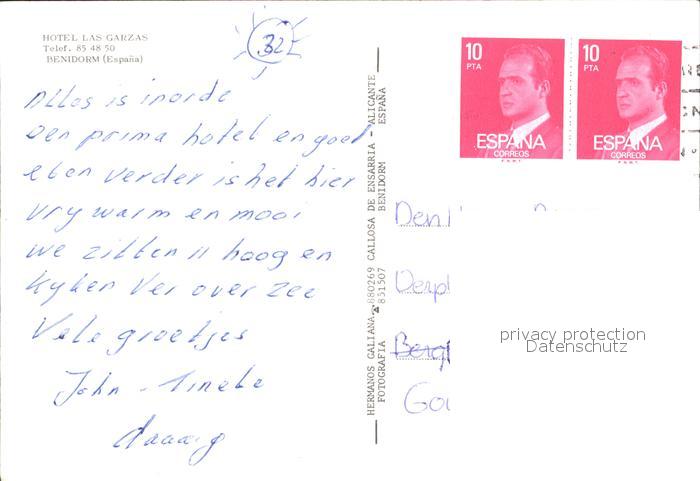 HOTEL LAS GARZAS
Telef. 85 48 50
BENIDORM (España)
32
Alles is inorde
Een prima hotel en goed
eten verder is het hier
vry warm en mooi
we zitten 11 hoog en
kyken ver over zee
Vele groetjes
John - Tineke
daaaig
HERMANOS GALIANA - 880269 CALLOSA DE ENSARRIA - ALICANTE
FOTOGRAFIA 851507 BENIDORM ESPAÑA
10 PTA
ESPAÑA
CORREOS
10 PTA
ESPAÑA
CORREOS
privacy protection
Datenschutz